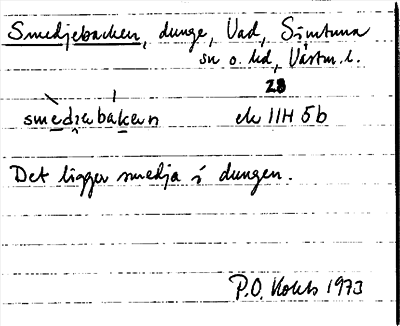 Smedjebacken, dunge, Vad, Simtuna
sn o. hd, Västm. l.
28
smedɪebakεn ek 11H 5b
Det ligger smedja i dungen.
P.O. 1973